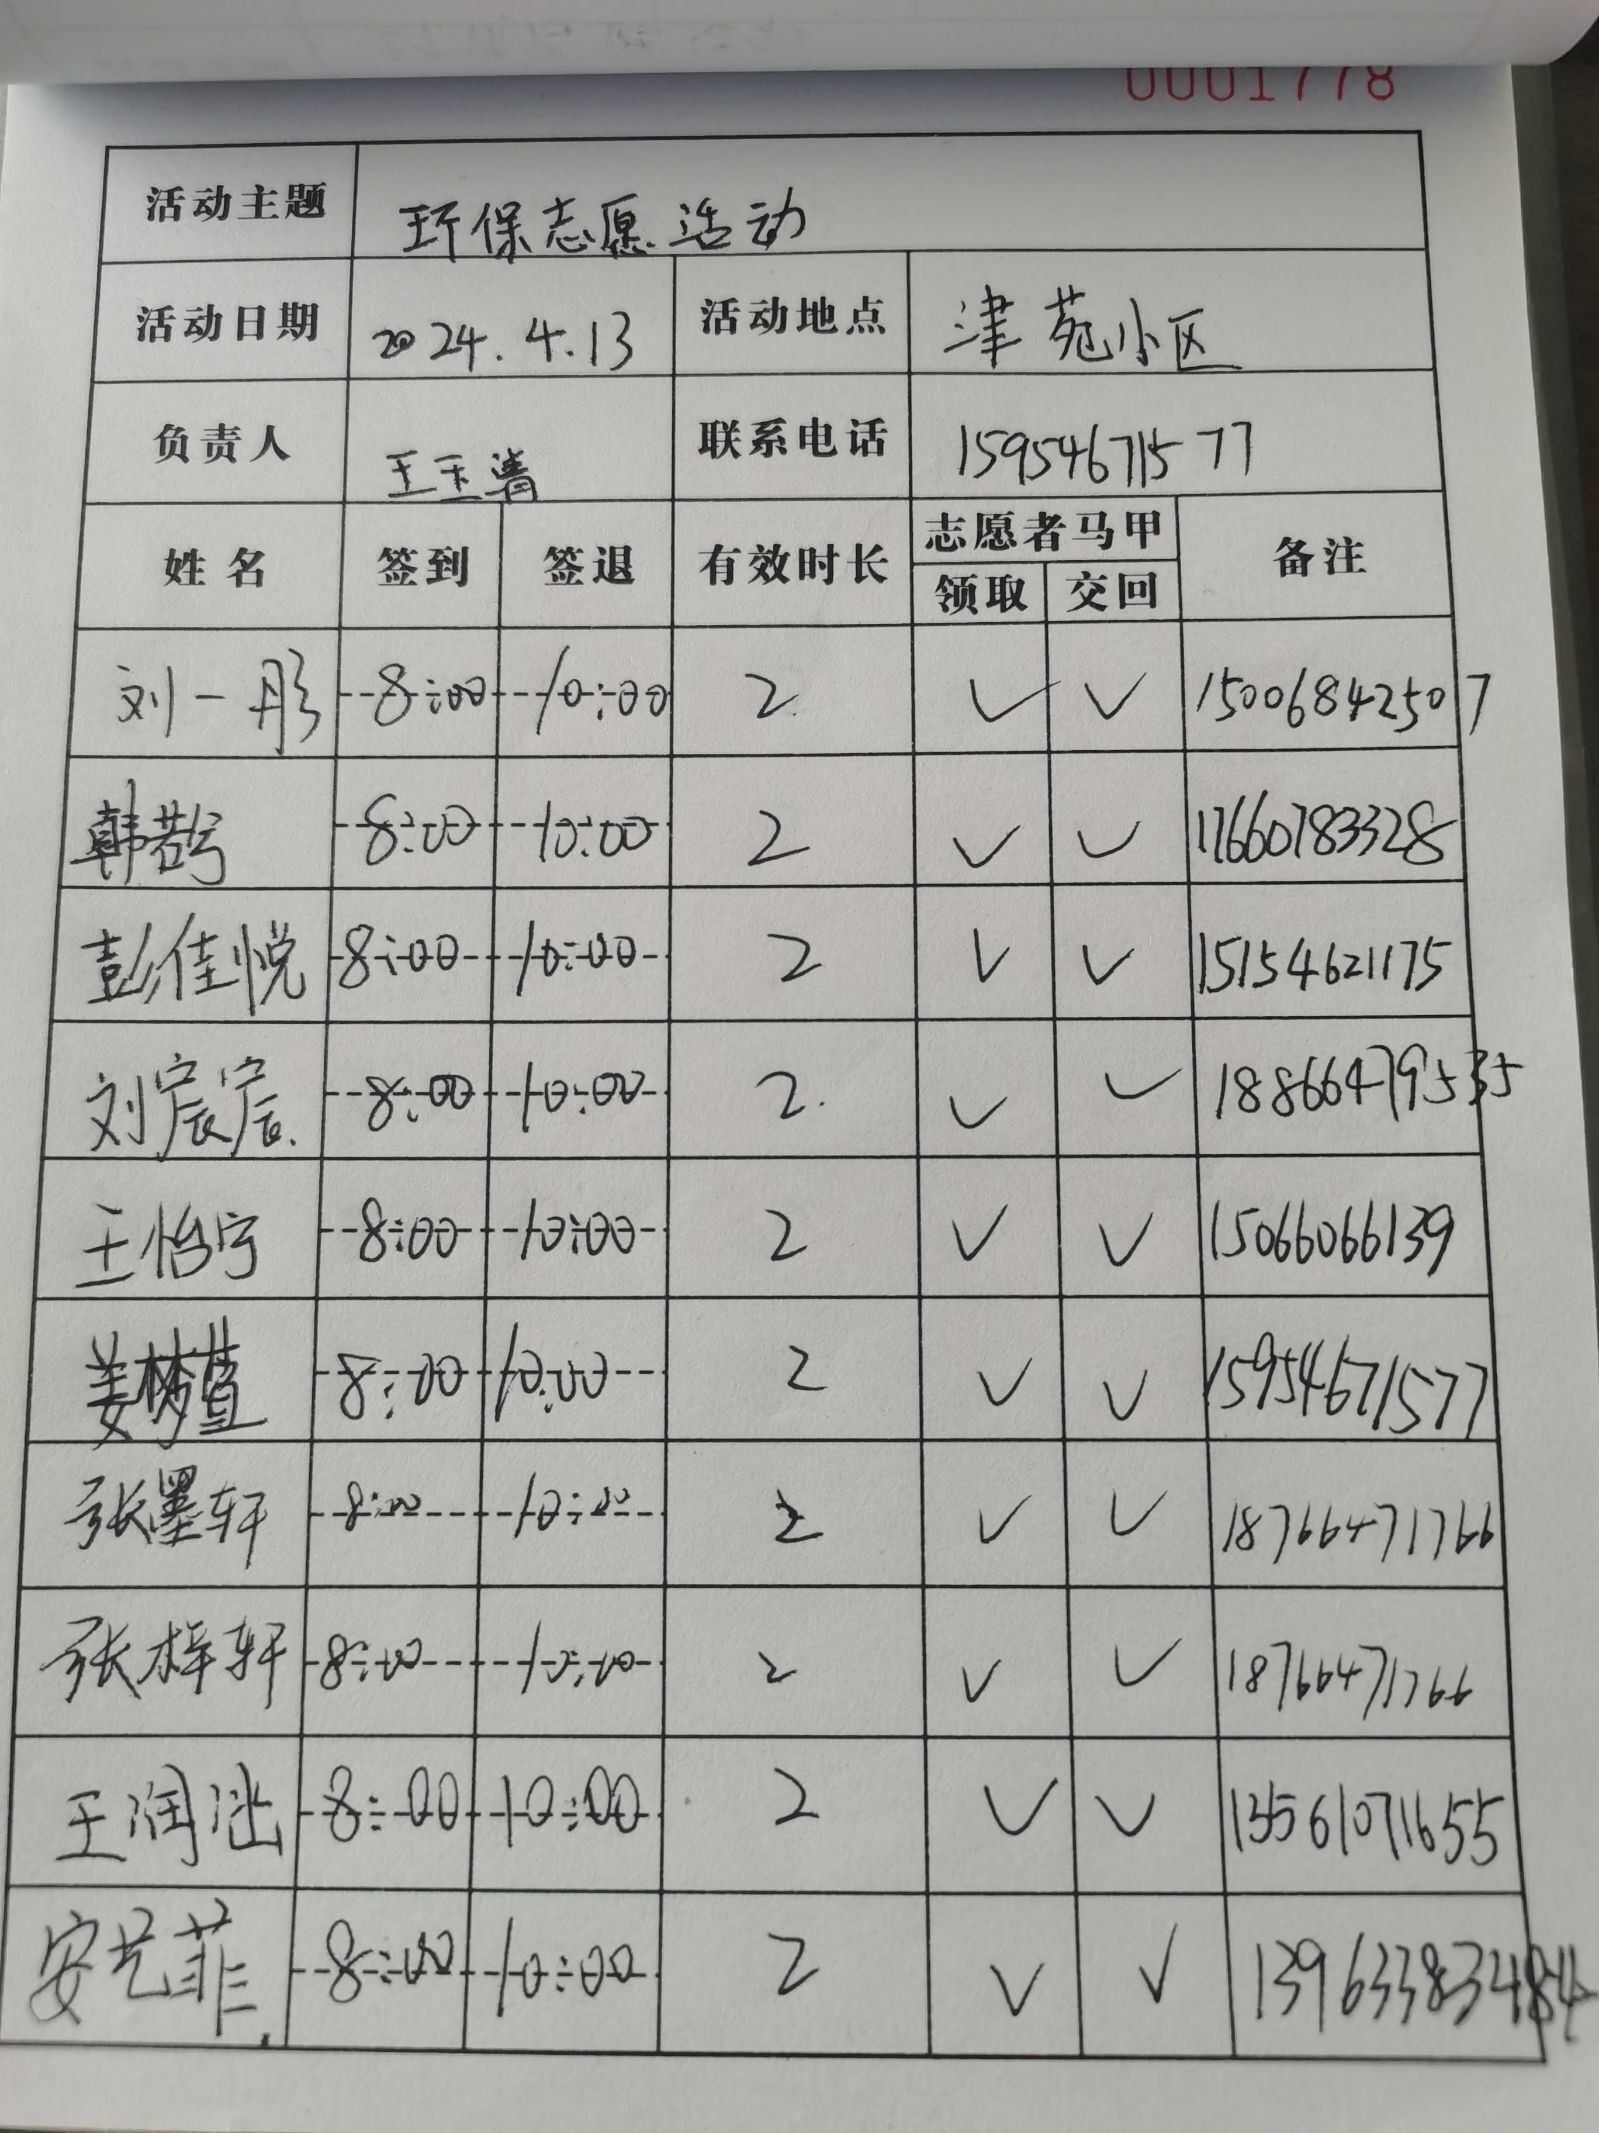 0001778
活动主题 环保志愿活动
活动日期 2024.4.13 活动地点 津苑小区
负责人 王玉清 联系电话 15954671577
姓名 签到 签退 有效时长 志愿者马甲 备注
领取 交回
刘一彤 8:00 10:00 2 ✓ ✓ 15006842507
韩 8:00 10:00 2 ✓ ✓ 17660783328
彭佳悦 8:00 10:00 2 ✓ ✓ 15154621175
刘宸宸 8:00 10:00 2 ✓ ✓ 18866479535
王怡宁 8:00 10:00 2 ✓ ✓ 15066066139
姜梦萱 8:00 10:00 2 ✓ ✓ 15954671577
张墨轩 8:00 10:00 2 ✓ ✓ 18766471766
张梓轩 8:00 10:00 2 ✓ ✓ 18766471766
王润 8:00 10:00 2 ✓ ✓ 13561071655
安艺菲 8:00 10:00 2 ✓ ✓